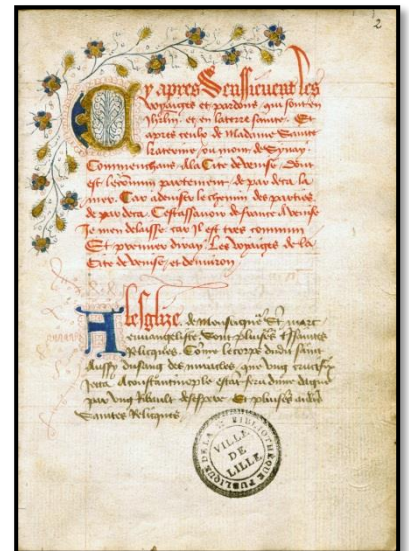 2
Cy apres Sensieuent les
voyaiges et pardons qui sont en
Jhrlm et en la terre saincte Et
apres ceulx de Madame Saincte
Katerine ou mont de Synay
Commenchans a la Cite de venise Dont
est le commun partement de par deca la
mer. Car adviser le chemin des parties
de par deca Cest assauoir de france a venise
Je men delaisse car Jl est tres commun
Et premier diray Les voyaiges de la
Cite de venise et denuiron
A lesglize de monseigneur St marc
euuangeliste Sont pluiseurs Saintes
Relicques Come le corps dudit saint
Aussy du sang des miracles que ung crucifix
Jecta a constantinople
par ung Ribault desespere Et pluiseurs aultres
Saintes Relicques
BIBLIOTHEQUE PUBLIQUE DE LA
VILLE
DE
LILLE